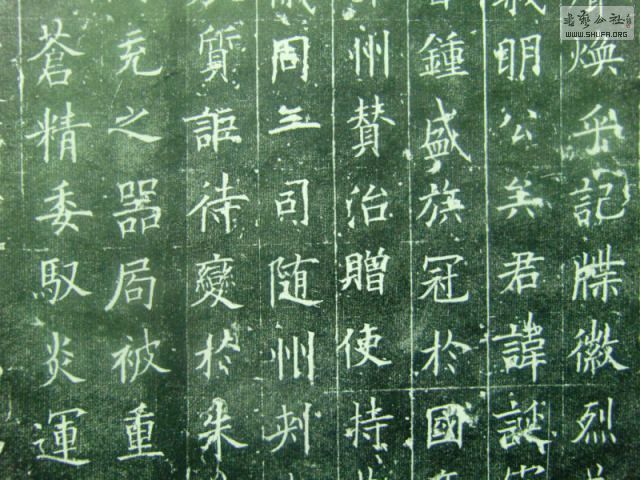 煥乎記牒徽烈
明公矣君諱誕
鍾盛族冠於國
州贊治贈使持
周三司随州刺
質詎待變於朱
充之器局被重
蒼精委馭炎運
书艺公社
WWW.SHUFA.ORG